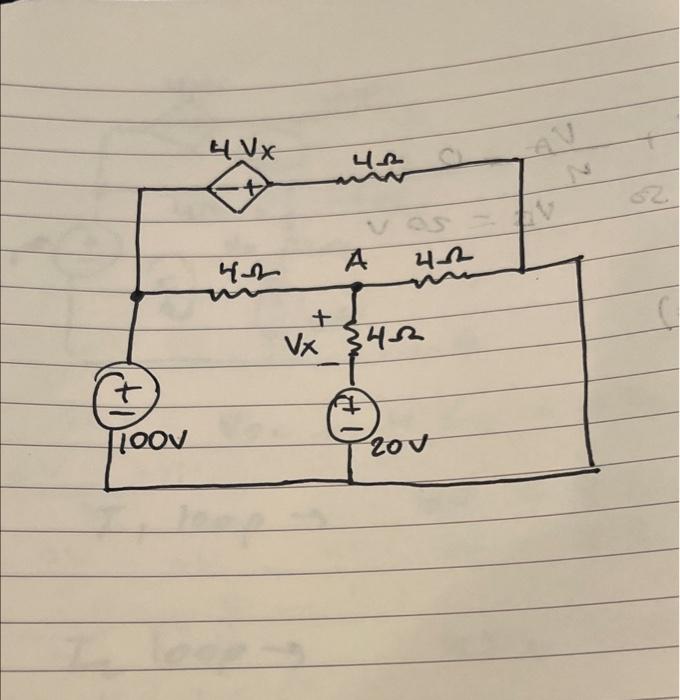 4 Vx 4Ω
4Ω A 4Ω
+
Vx 4Ω
−
+ +
− −
100V 20V